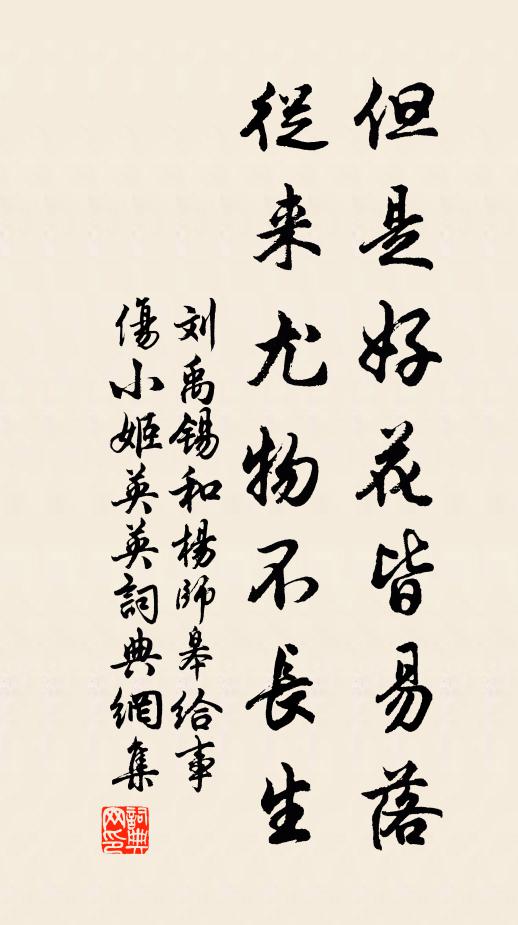 但是好花皆易落
從来尤物不長生
刘禹锡和楊師皋給事
傷小姬英英詞典網集
詞典网印